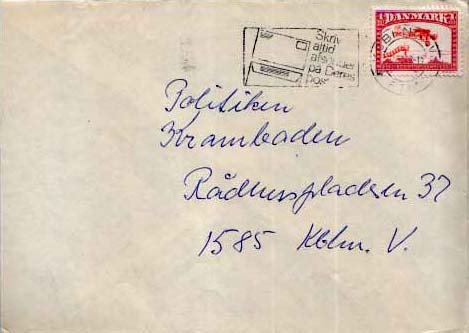 Skriv
altid
afsender
på Deres
post
1 DANMARK 1
Politiken
Kramboden
Rådhuspladsen 37
1585 Kbhn. V.